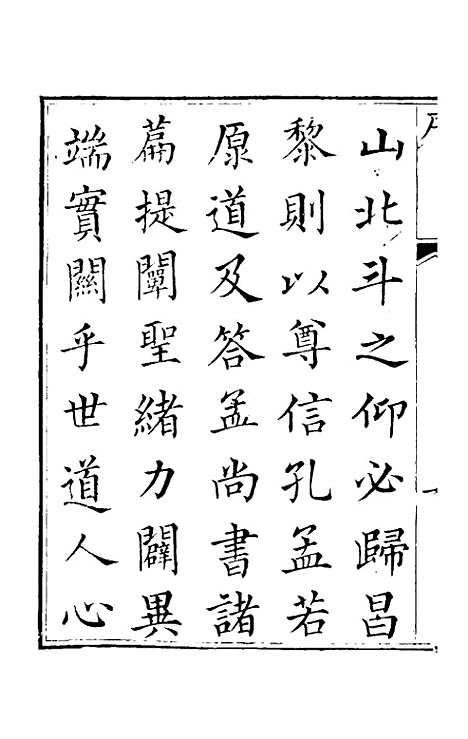 山北斗之仰必歸昌
黎則以尊信孔孟若
原道及答孟尚書諸
篇提闡聖緒力闢異
端實關乎世道人心